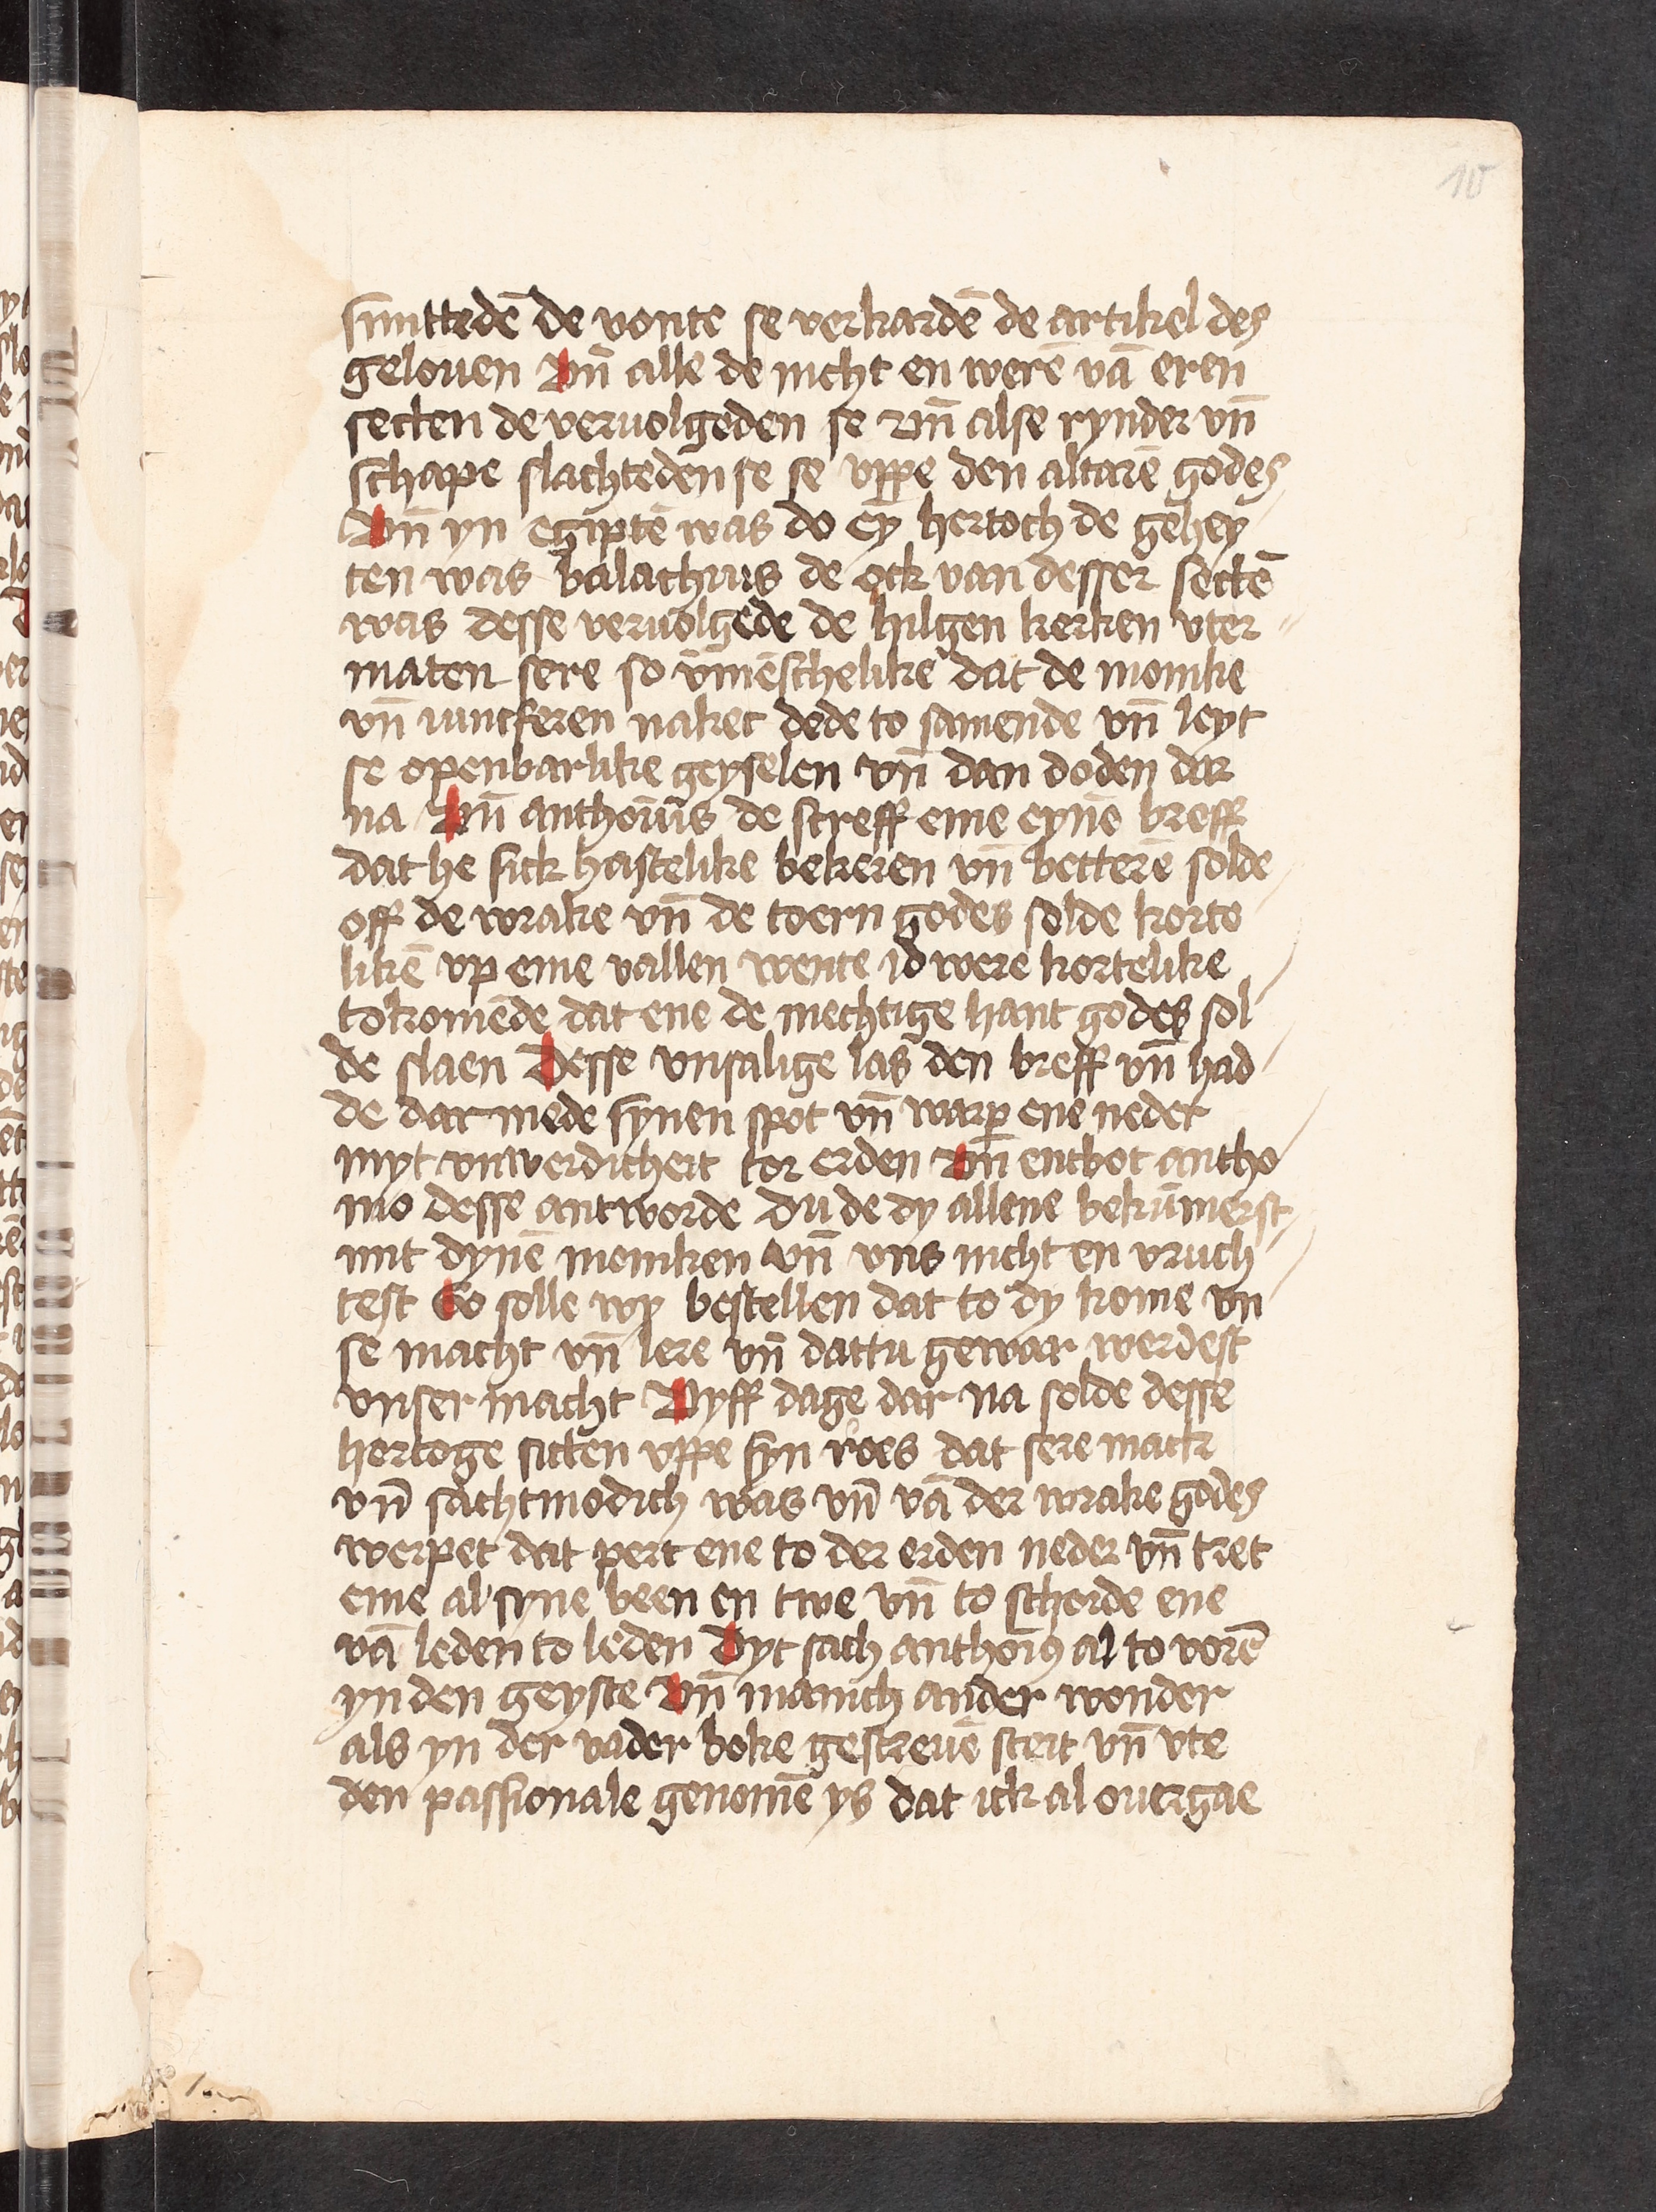 10
smittedē de vonte se verkardē de artikel des
gelouen Vn̄ alle de nicht en werē vā eren
secten de veruolgeden se vn̄ alse rynder vn̄
schape slachteden se se vppe den altarē godes
Vn̄ yn egiptē was do ey̅ hertoch de gehey
ten was balachius de ock van desser sectē
was desse veruolgede de hilgen kerken vter
maten sere so vm̄ēschelike dat de monike
vn̄ iuncferen naket dede to samende vn̄ leyt
se openbarlike geyselen vn̄ dan doden dar
na Vn̄ anthonius de screff eme eynē breff
dat he sick hastelike bekeren vn̄ betterē solde
off de wrake vn̄ de toern godes solde korte
likē vp eme vallen wente id were kortelike
tokomēde dat ene de mechtige hant godes sol
de slaen Desse vnsalige las den breff vn̄ had
de dar mede synen spot vn̄ warp ene neder
myt vnwerdicheit tor erden Vn̄ entbot antho
nio desse antworde Du de dy allene bekūmerst
mit dynē moniken vn̄ vns nicht en vruch
test So solle wy bestellen dat to dy kome vn
se macht vn̄ lere vn̄ dattu gewar werdest
vnser macht Vyff dage dar na solde desse
hertoge sitten vppe syn roes dat sere mack
vn̄ sachtmodich was vn̄ vā der wrake godes
werpet dat pert ene to der erden neder vn̄ tret
eme al syne been en twe vn̄ to schorde ene
vā leden to leden Dyt sach anthoniꝰ al to vorē
yn den geyste Vn̄ manich ander wonder
als yn der vader boke gescreuē steit vn̄ vte
den passionale genomē ys dat ick al ouergae